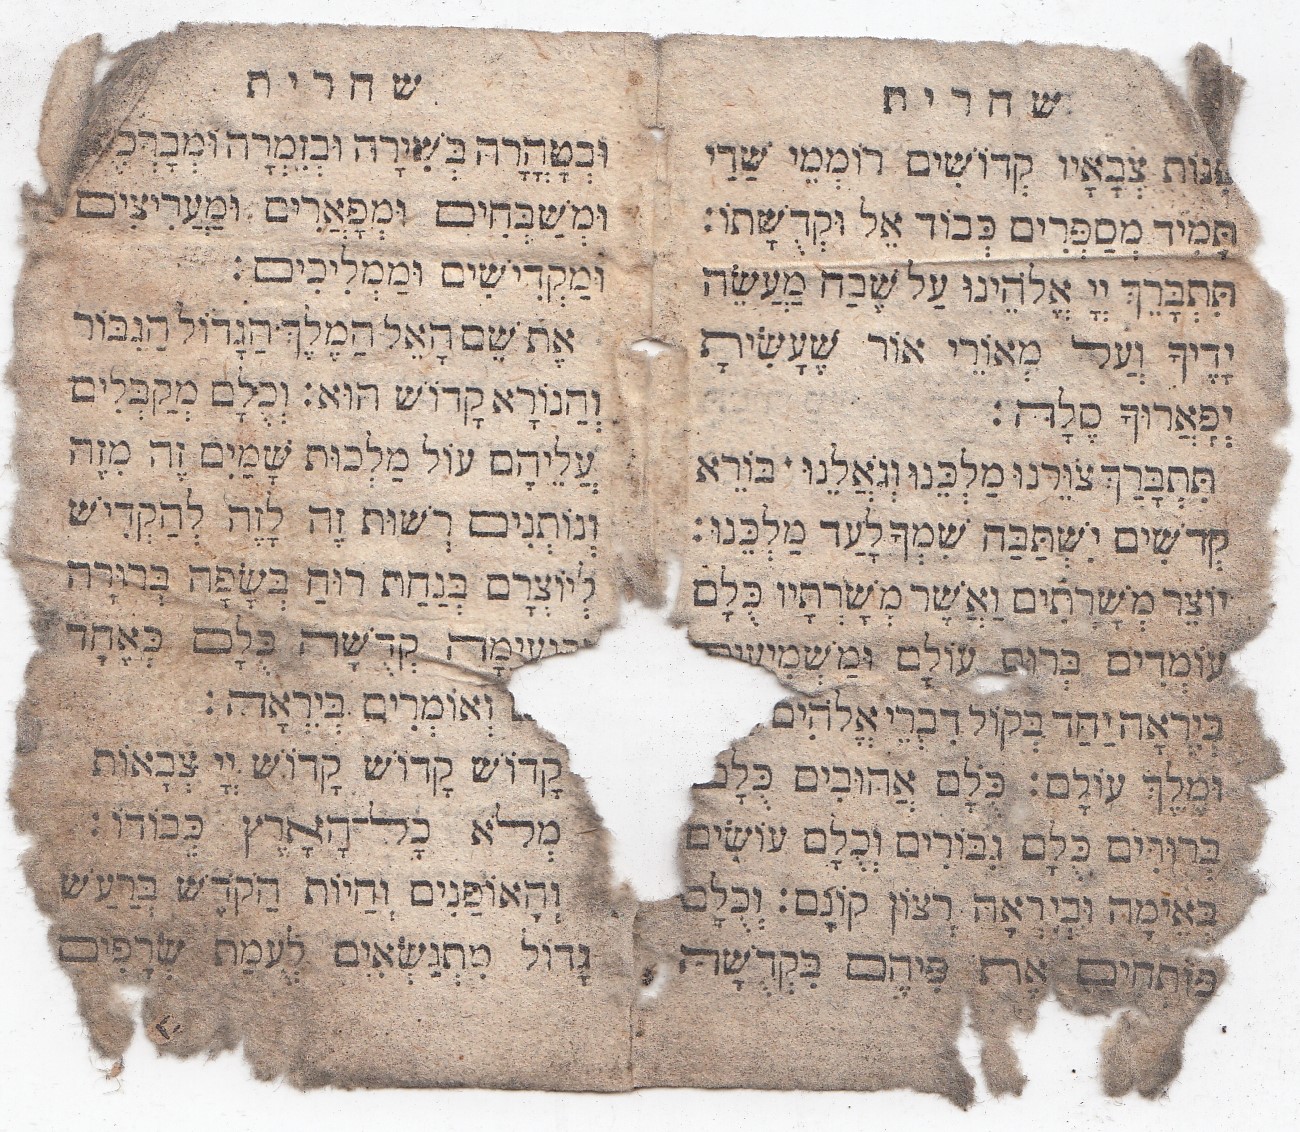 שחרית
פִּנּוֹת צְבָאָיו קְדוֹשִׁים רוֹמְמֵי שַׁדַּי
תָּמִיד מְסַפְּרִים כְּבוֹד אֵל וּקְדֻשָּׁתוֹ:
תִּתְבָּרֵךְ יְיָ אֱלֹהֵינוּ עַל שֶׁבַח מַעֲשֵׂה
יָדֶיךָ וְעַל מְאוֹרֵי אוֹר שֶׁעָשִׂיתָ
יְפָאֲרוּךָ סֶלָה:
תִּתְבָּרַךְ צוּרֵנוּ מַלְכֵּנוּ וְגֹאֲלֵנוּ בּוֹרֵא
קְדֹשִׁים יִשְׁתַּבַּח שִׁמְךָ לָעַד מַלְכֵּנוּ:
יוֹצֵר מְשָׁרְתִים וַאֲשֶׁר מְשָׁרְתָיו כֻּלָּם
עוֹמְדִים בְּרוּם עוֹלָם וּמַשְׁמִיעִים
בְּיִרְאָה יַחַד בְּקוֹל דִּבְרֵי אֱלֹהִים
וּמֶלֶךְ עוֹלָם: כֻּלָּם אֲהוּבִים כֻּלָּם
בְּרוּרִים כֻּלָּם גִּבּוֹרִים וְכֻלָּם עוֹשִׂים
בְּאֵימָה וּבְיִרְאָה רְצוֹן קוֹנָם: וְכֻלָּם
פּוֹתְחִים אֶת פִּיהֶם בִּקְדֻשָּׁה
שחרית
וּבְטָהֳרָה בְּשִׁירָה וּבְזִמְרָה
וּמְשַׁבְּחִים וּמְפָאֲרִים וּמַעֲרִיצִים
וּמַקְדִּישִׁים וּמַמְלִיכִים:
אֶת שֵׁם הָאֵל הַמֶּלֶךְ הַגָּדוֹל הַגִּבּוֹר
וְהַנּוֹרָא קָדוֹשׁ הוּא: וְכֻלָּם מְקַבְּלִים
עֲלֵיהֶם עוֹל מַלְכוּת שָׁמַיִם זֶה מִזֶּה
וְנוֹתְנִים רְשׁוּת זֶה לָזֶה לְהַקְדִּישׁ
לְיוֹצְרָם בְּנַחַת רוּחַ בְּשָׂפָה בְּרוּרָה
וּבִנְעִימָה קְדֻשָּׁה כֻּלָּם כְּאֶחָד
וְאוֹמְרִים בְּיִרְאָה:
קָדוֹשׁ קָדוֹשׁ קָדוֹשׁ יְיָ צְבָאוֹת
מְלֹא כָל־הָאָרֶץ כְּבוֹדוֹ:
וְהָאוֹפַנִּים וְחַיּוֹת הַקֹּדֶשׁ בְּרַעַשׁ
גָּדוֹל מִתְנַשְּׂאִים לְעֻמַּת שְׂרָפִים